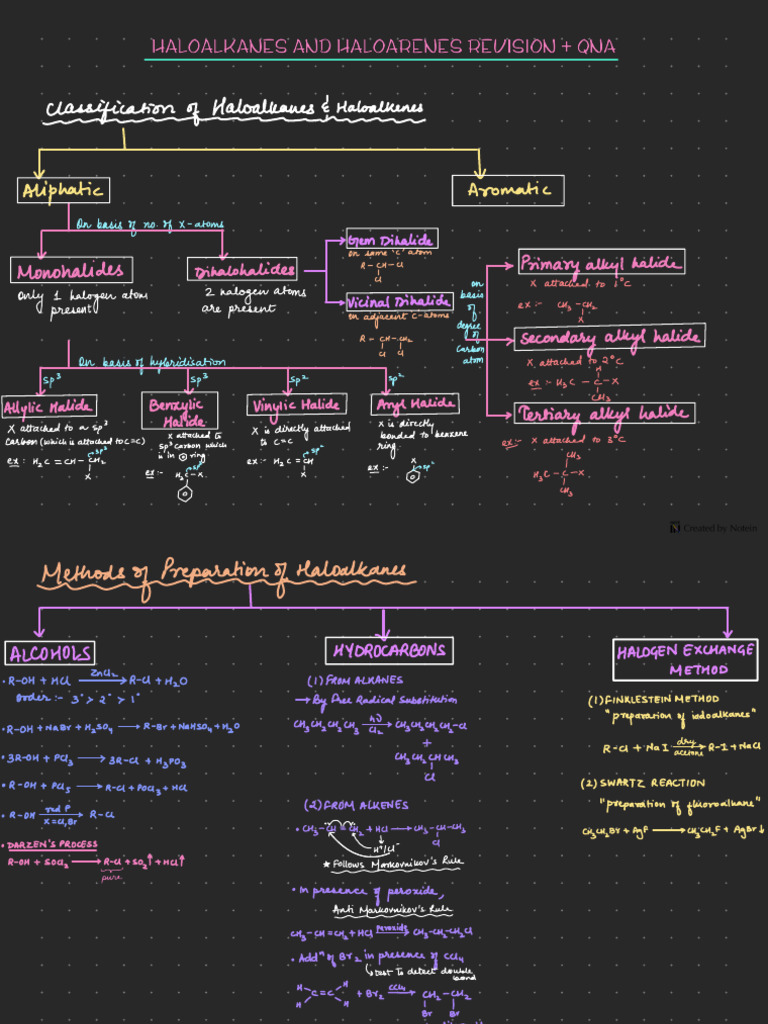 HALOALKANES AND HALOARENES REVISION + QNA
Classification of Haloalkanes & Haloalkenes
Aliphatic
Aromatic
On basis of no. of X-atoms
Monohalides
Only 1 halogen atom
present
Dihalohalides
2 halogen atoms
are present
Gem Dihalide
on same 'C' atom
R - CH - Cl
Cl
Vicinal Dihalide
on adjacent C-atoms
R - CH - CH2
Cl Cl
on
basis
of
degree of
Carbon
atom
Primary alkyl halide
X attached to 1°C
ex :- CH3 - CH2
X
Secondary alkyl halide
X attached to 2°C
H
ex :- H3C - C - X
CH3
Tertiary alkyl halide
ex :- X attached to 3°C
CH3
H3C - C - X
CH3
On basis of hybridisation
sp3
sp3
sp2
sp2
Allylic Halide
X attached to a sp3
carbon (which is attached to C=C)
sp3
ex :- H2C = CH - CH2
X
Benzylic
Halide
X attached to
sp3 carbon which
is in ring
sp3
ex :- H2C - X
Vinylic Halide
X is directly attached
to C = C
sp2
ex :- H2C = CH
X
Aryl Halide
X is directly
bonded to benzene
ring
X
ex :- sp2
Created by Notein
Methods of Preparation of Haloalkanes
ALCOHOLS
• R-OH + HCl ZnCl2 → R-Cl + H2O
Order :- 3° > 2° > 1°
• R-OH + NaBr + H2SO4 → R-Br + NaHSO4 + H2O
• 3R-OH + PCl3 → 3R-Cl + H3PO3
• R-OH + PCl5 → R-Cl + POCl3 + HCl
• R-OH red P → R-Cl
X = Cl, Br
• DARZEN'S PROCESS
R-OH + SOCl2 → R-Cl + SO2↑ + HCl↑
pure
HYDROCARBONS
(1) FROM ALKANES
→ By Free Radical Substitution
CH3CH2CH2CH3 hν → CH3CH2CH2CH2-Cl
Cl2
+
CH3CH2CHCH3
Cl
(2) FROM ALKENES
• CH3-CH = CH2 + HCl → CH3-CH-CH3
Cl
H+/Cl-
★ Follows Markovnikov's Rule
• In presence of peroxide,
Anti Markovnikov's Rule
CH3-CH=CH2 + HCl peroxide → CH3-CH2-CH2Cl
• Addn of Br2 in presence of CCl4
↳ test to detect double
bond
H H
C = C + Br2 CCl4 → CH2 - CH2
H H
Br Br
HALOGEN EXCHANGE
METHOD
(1) FINKLESTEIN METHOD
"preparation of iodoalkanes"
R-Cl + NaI dry → R-I + NaCl
acetone
(2) SWARTZ REACTION
"preparation of fluoroalkane"
CH3CH2Br + AgF → CH3CH2F + AgBr↓